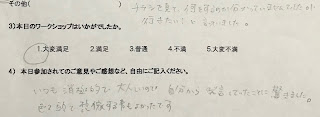 その他(
チラシを見て、何をするのか分かっていませんでしたが
好きだいこと思いました。
3)本日のワークショップはいかがでしたか。
1.大変満足 2.満足 3.普通 4.不満 5.大変不満
4) 本日参加されてのご意見やご感想など、自由にご記入ください。
いつも消極的で大人しいので 自分から発言していったことに驚きました。
色々動いて 体験する事もよかったです